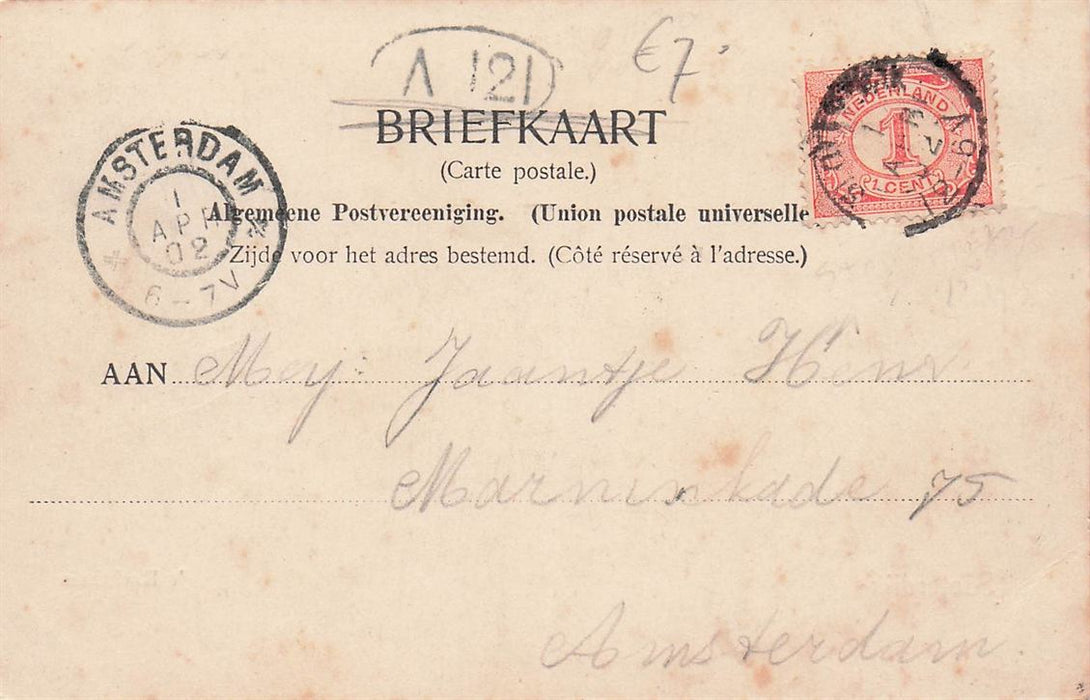 A 121
€7.
BRIEFKAART
(Carte postale.)
Algemeene Postvereeniging. (Union postale universelle
Zijde voor het adres bestemd. (Côté réservé à l'adresse.)
AMSTERDAM
1
APR
02
6-7V
NEDERLAND
1
CENT
AAN Mej. Jaantje
75
Amsterdam.